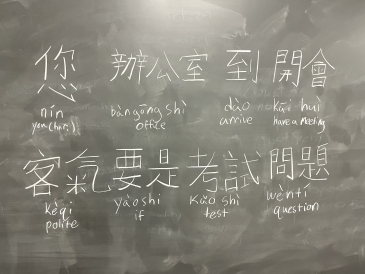 您 辦公室 到 開會
nín bàngōng shì dào kāi huì
you (hon.) office arrive have a meeting
客氣 要是 考試 問題
kèqi yàoshi kǎo shì wèntí
polite if test question